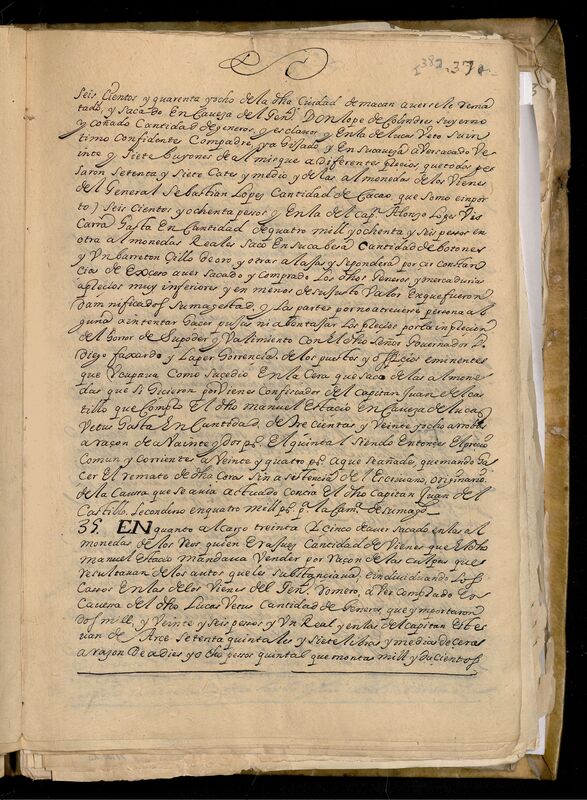 I382 37
Seis Cientos y quarenta y ocho de la dha Ciudad de macan averse le rema
tado, y sacado En Caveza del Gen. Don lope de Colondres su yerno
y coñado Cantidad de generos y esclavos y En la de lucas Veto su in
timo Confidente Compadre y a Gijado y En su caveza aver sacado Ve
inte y siete buyones de almisque a diferentes precios, que todos pe
saron Setenta y siete Cates y medio y de las almonedas de los Vienes
del General Sebastian Lopes Cantidad de Cacao, que somo e inpor
to Seis Cientos y ochenta pesos y En la del capn Alonso Lopes
Carra Gasta En Cantidad de quatro mill y ochenta y seis pesos en
otra almonedas Reales saco En su cabesa Cantidad de botones
y Un barreton cillo de oro, y otras alajas y se pondera por cir constan
cias de Exceso aver sacado y comprado Los dhos Generos y mercadurias
a precios muy inferiores y en menos de su justo Valor En que fueron
damnificados su magestad, y Las partes por no atreverse persona al
guna a intentar Gacer pujas ni abentajar Los precios por la inplecion
del Honor de su poder y Valimiento con El dho Señor Governador Dn
Diego faxardo y La perGerrencia de los puestos y officios eminentes
que ocupava Como sucedio En la Cera que saco de las almone
das que se Gicieron por vienes Confiscados del Capitan Juan de el cas
tillo que compro El dho manuel Estacio En Caveza de lucas
Vetus Gasta En Cantidad de tre Cientas y Veinte y ocho arrobas
a razon de a Vainte y dos ps El quintal siendo Entonces El precio
Comun y Corriente a Veinte y quatro ps a que se añade, que mando Ga
cer El remate de dha Ceras sin asistencia del Escrivano, originario
de la Causa que se avia actuado Contra El dho Capitan Juan del
Castillo, se condeno en quatro mill ps pa la Cama de su magd
35. EN quanto al cargo treinta y cinco de aver sacado en las al
monedas de los Veos quien Era Jues Cantidad de Vienes que El dho
manuel Estacio mandava Vender por Razon de las culpas que
resultavan de los autos que les substanciava, e individuando Los
Cassos En las de los Vienes del Gen. Romero, aver comprado En
Cavessa del dho Lucas Vetus Cantidad de Generos, que ymportaron
dos mill, y Veinte y seis pesos y Un Real y en las del capitan Este
van de Arce Setenta quintales y siete libras y media de Ceras
a razon de a dies y ocho pesos quintal que montas mill y ducientos